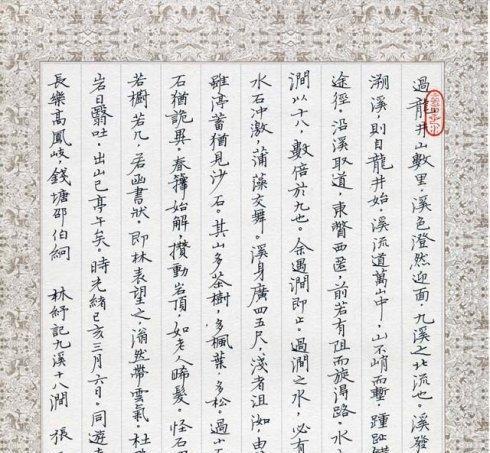 過龍井山數里，溪色澄然迎面，九溪之北流也。溪發
溯溪，則自龍井始。溪流道萬山中，山不峭而塹，踵趾
途徑。沿溪取道，東瞥西匿，前若有阻而旋得路。水
澗以十八，數倍於九也。余遇澗即止。過澗之水，必有
水石冲激，蒲藻交舞。溪身廣四五尺，淺者沮洳，由
雖渟蓄猶見沙石。其山多茶樹，多楓葉，多松。過小
石猶詭異。春籜始解，攢動岩頂，如老人晞髮。怪石
若櫥若几，若函書狀。即林表望之，滃然帶雲氣。杜
岩日翳吐，出山已亭午矣。時光緒己亥三月六日。同遊
長樂高鳳岐，錢塘邵伯絅 林紓記九溪十八澗 張